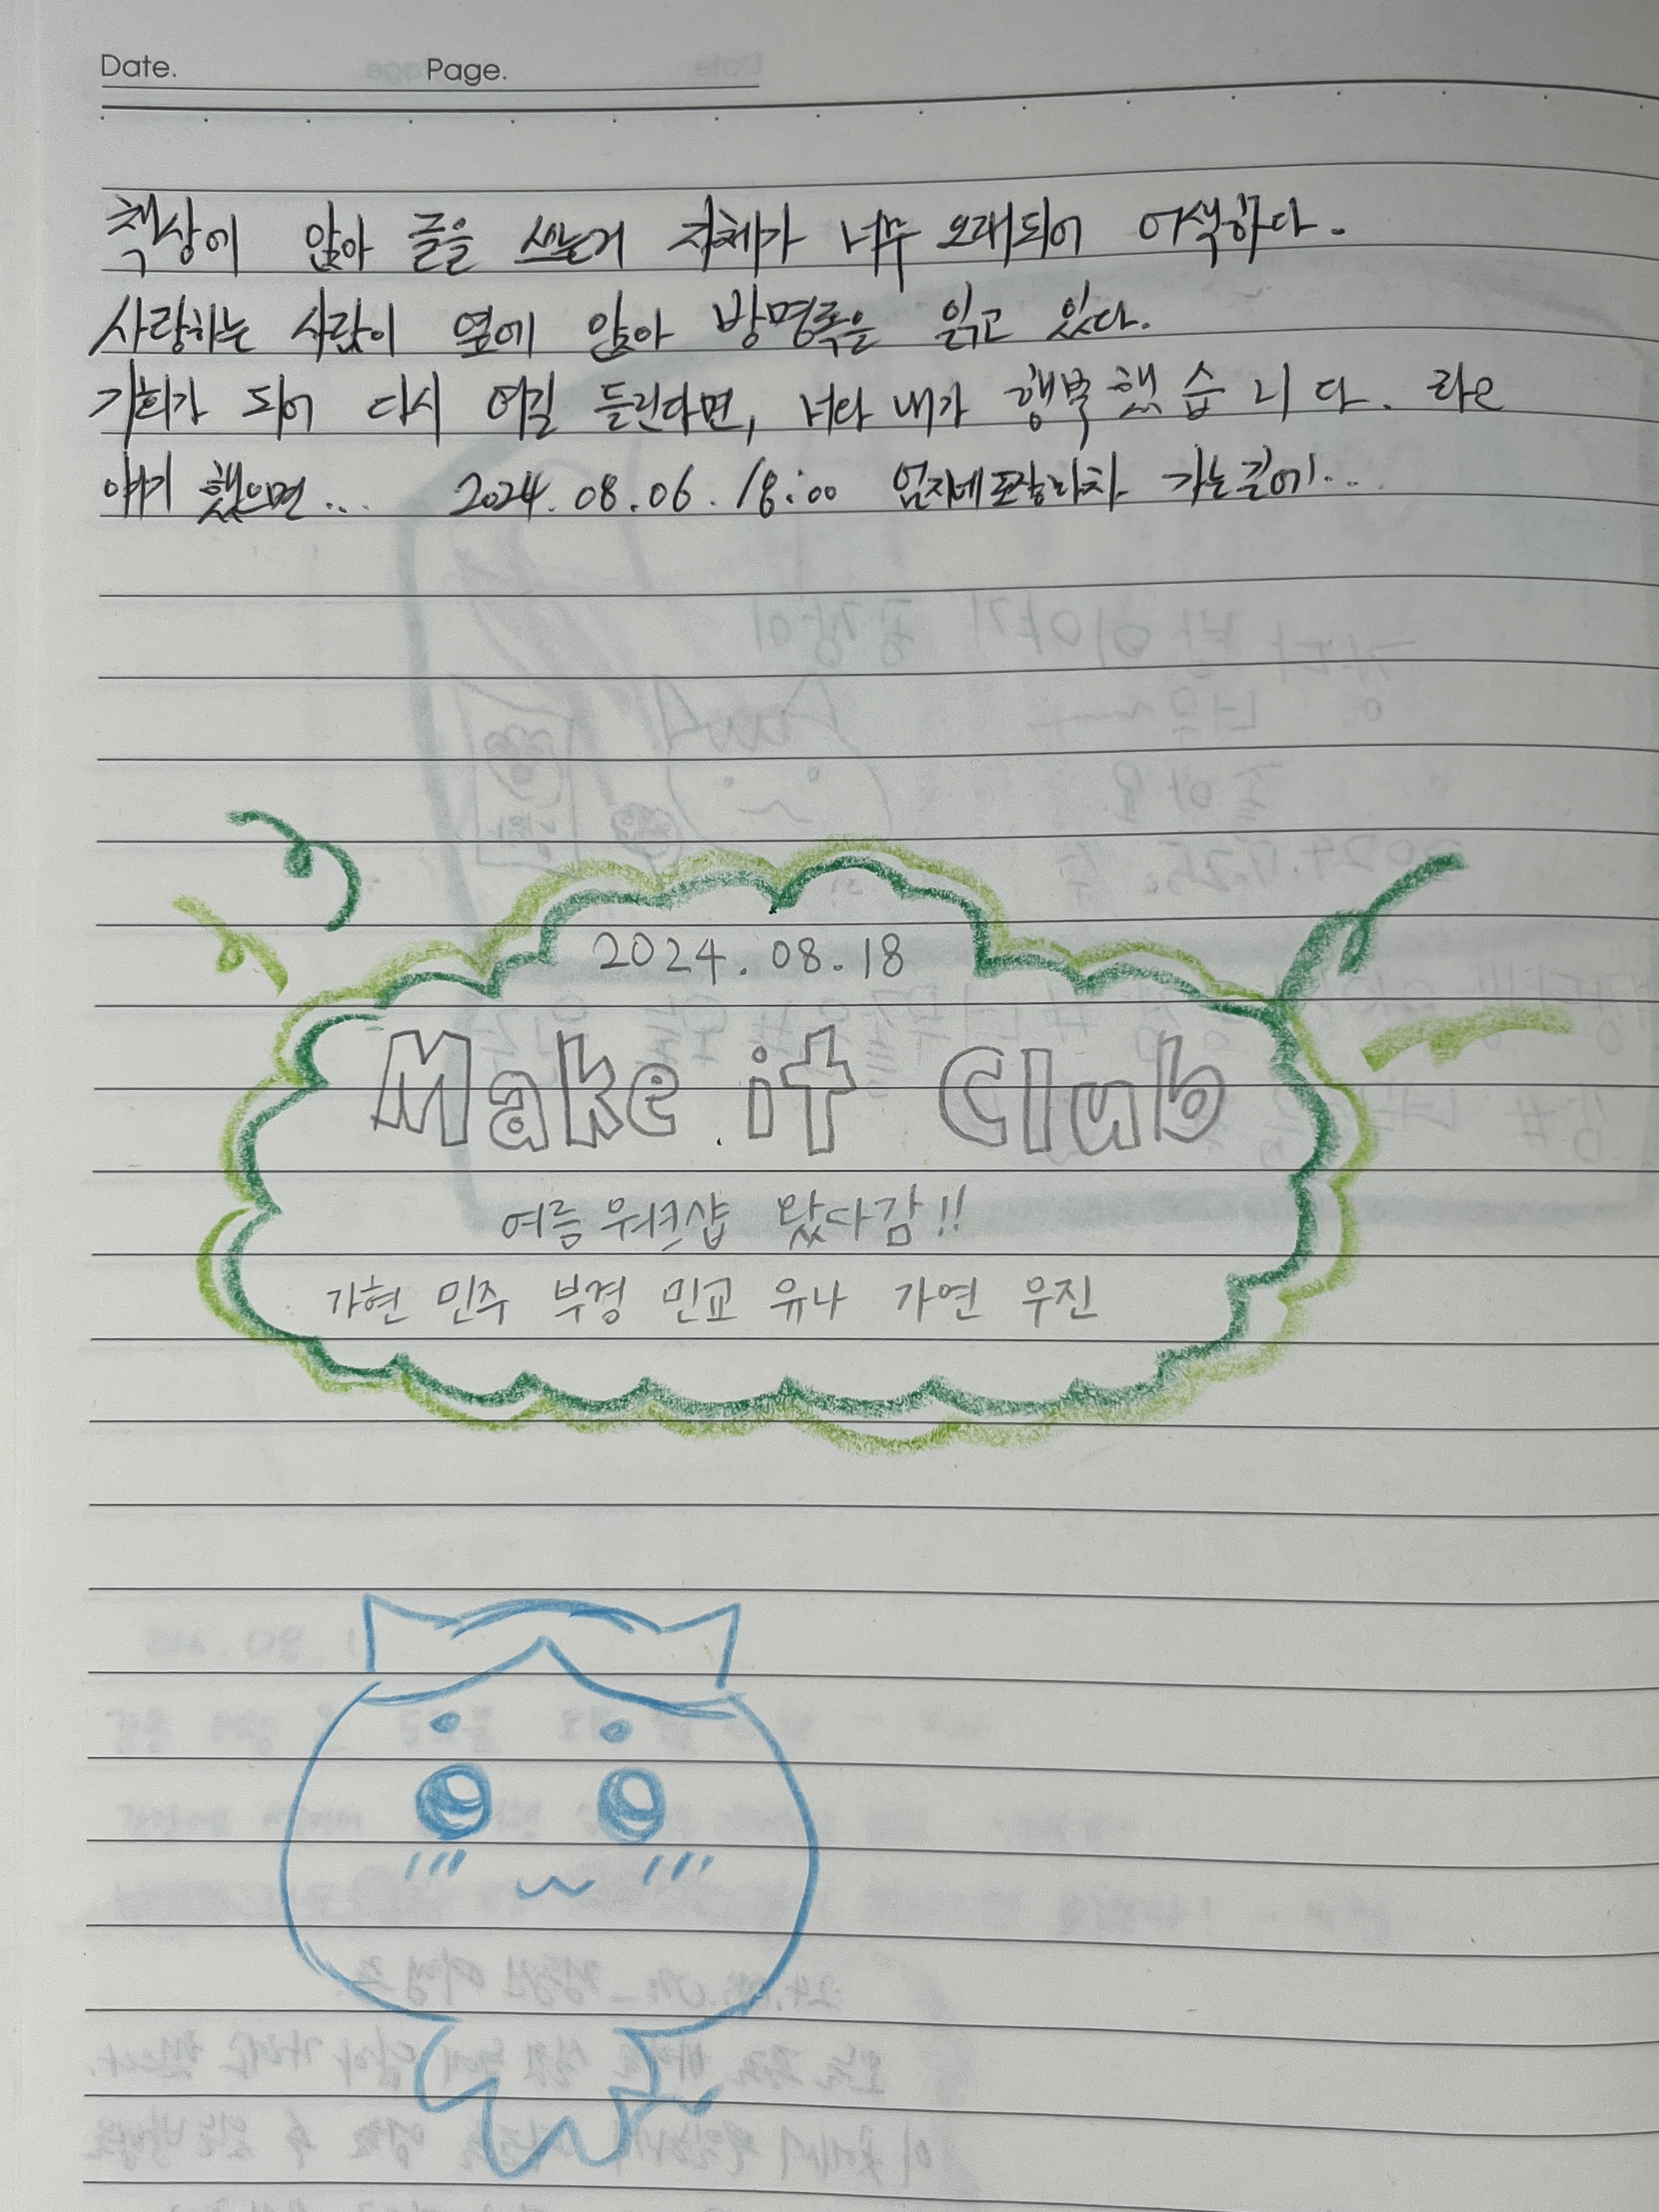 Date. Page.
책상에 앉아 글을 쓰는거 자체가 너무 오래되어 어색하다.
사랑하는 사람이 옆에 앉아 방명록을 읽고 있다.
기회가 되어 다시 여길 들린다면, 너와 내가 행복했습니다. 라고
얘기 했으면... 2024.08.06. 18:00 엄지네포장마차 가는길에...
2024.08.18
Make it Club
여름 워크샵 왔다감!!
가현 민주 부경 민교 유나 가연 우진